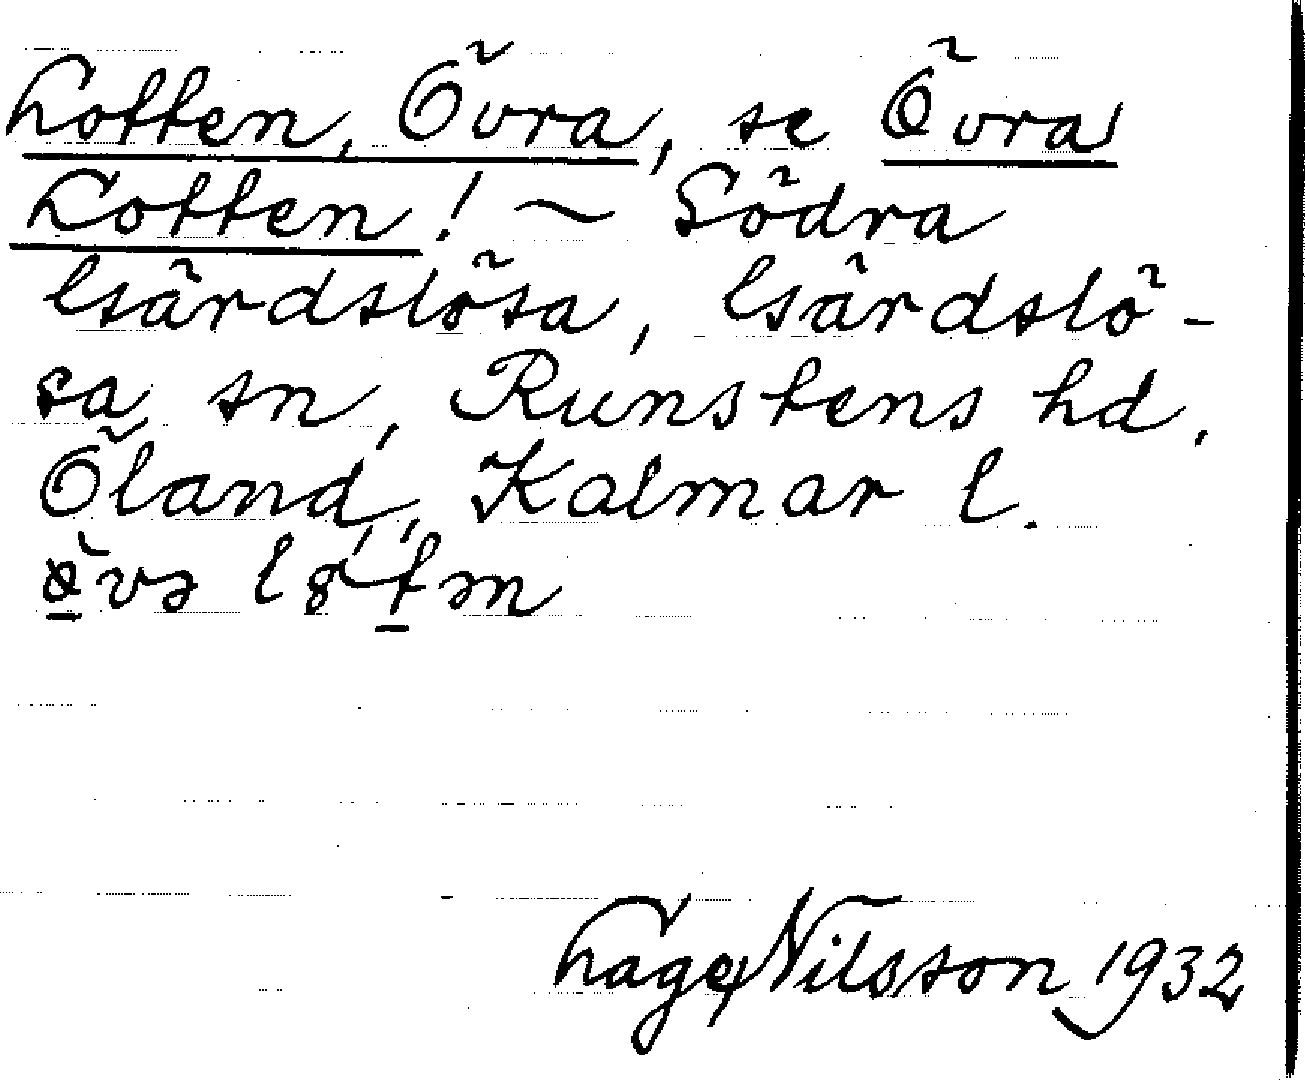 Lotten, Övra, se Övra
Lotten! ~ Södra
Gärdslösa, Gärdslö-
sa sn, Runstens hd,
Öland, Kalmar l.
Lage Nilsson 1932